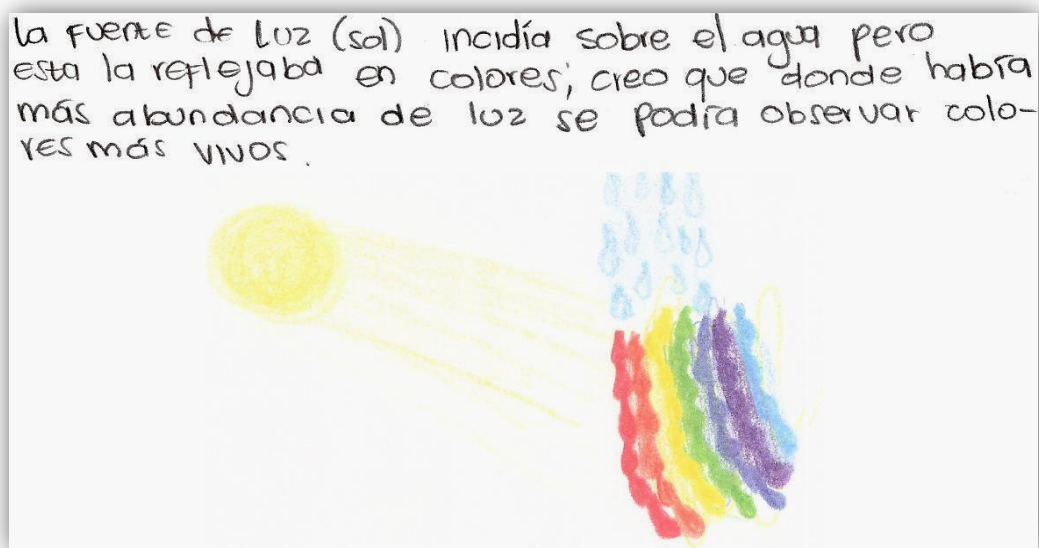 la fuente de luz (sol) incidía sobre el agua pero
esta la reflejaba en colores; creo que donde había
más abundancia de luz se podía observar colo-
res más vivos.